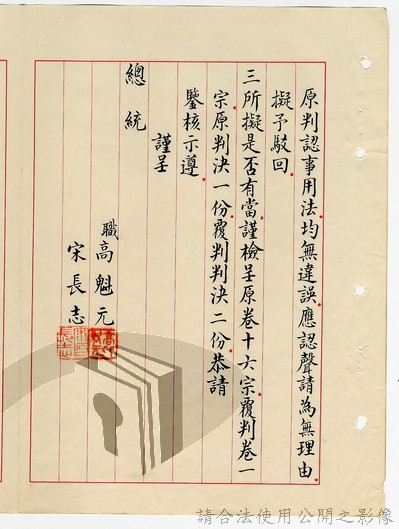 原判認事用法均無違誤應認聲請為無理由
擬予駁回
三所擬是否有當謹檢呈原卷十六宗覆判卷一
宗原判決一份覆判判決二份恭請
鑒核示遵
謹呈
總統
職高魁元
宋長志
請合法使用公開之影像